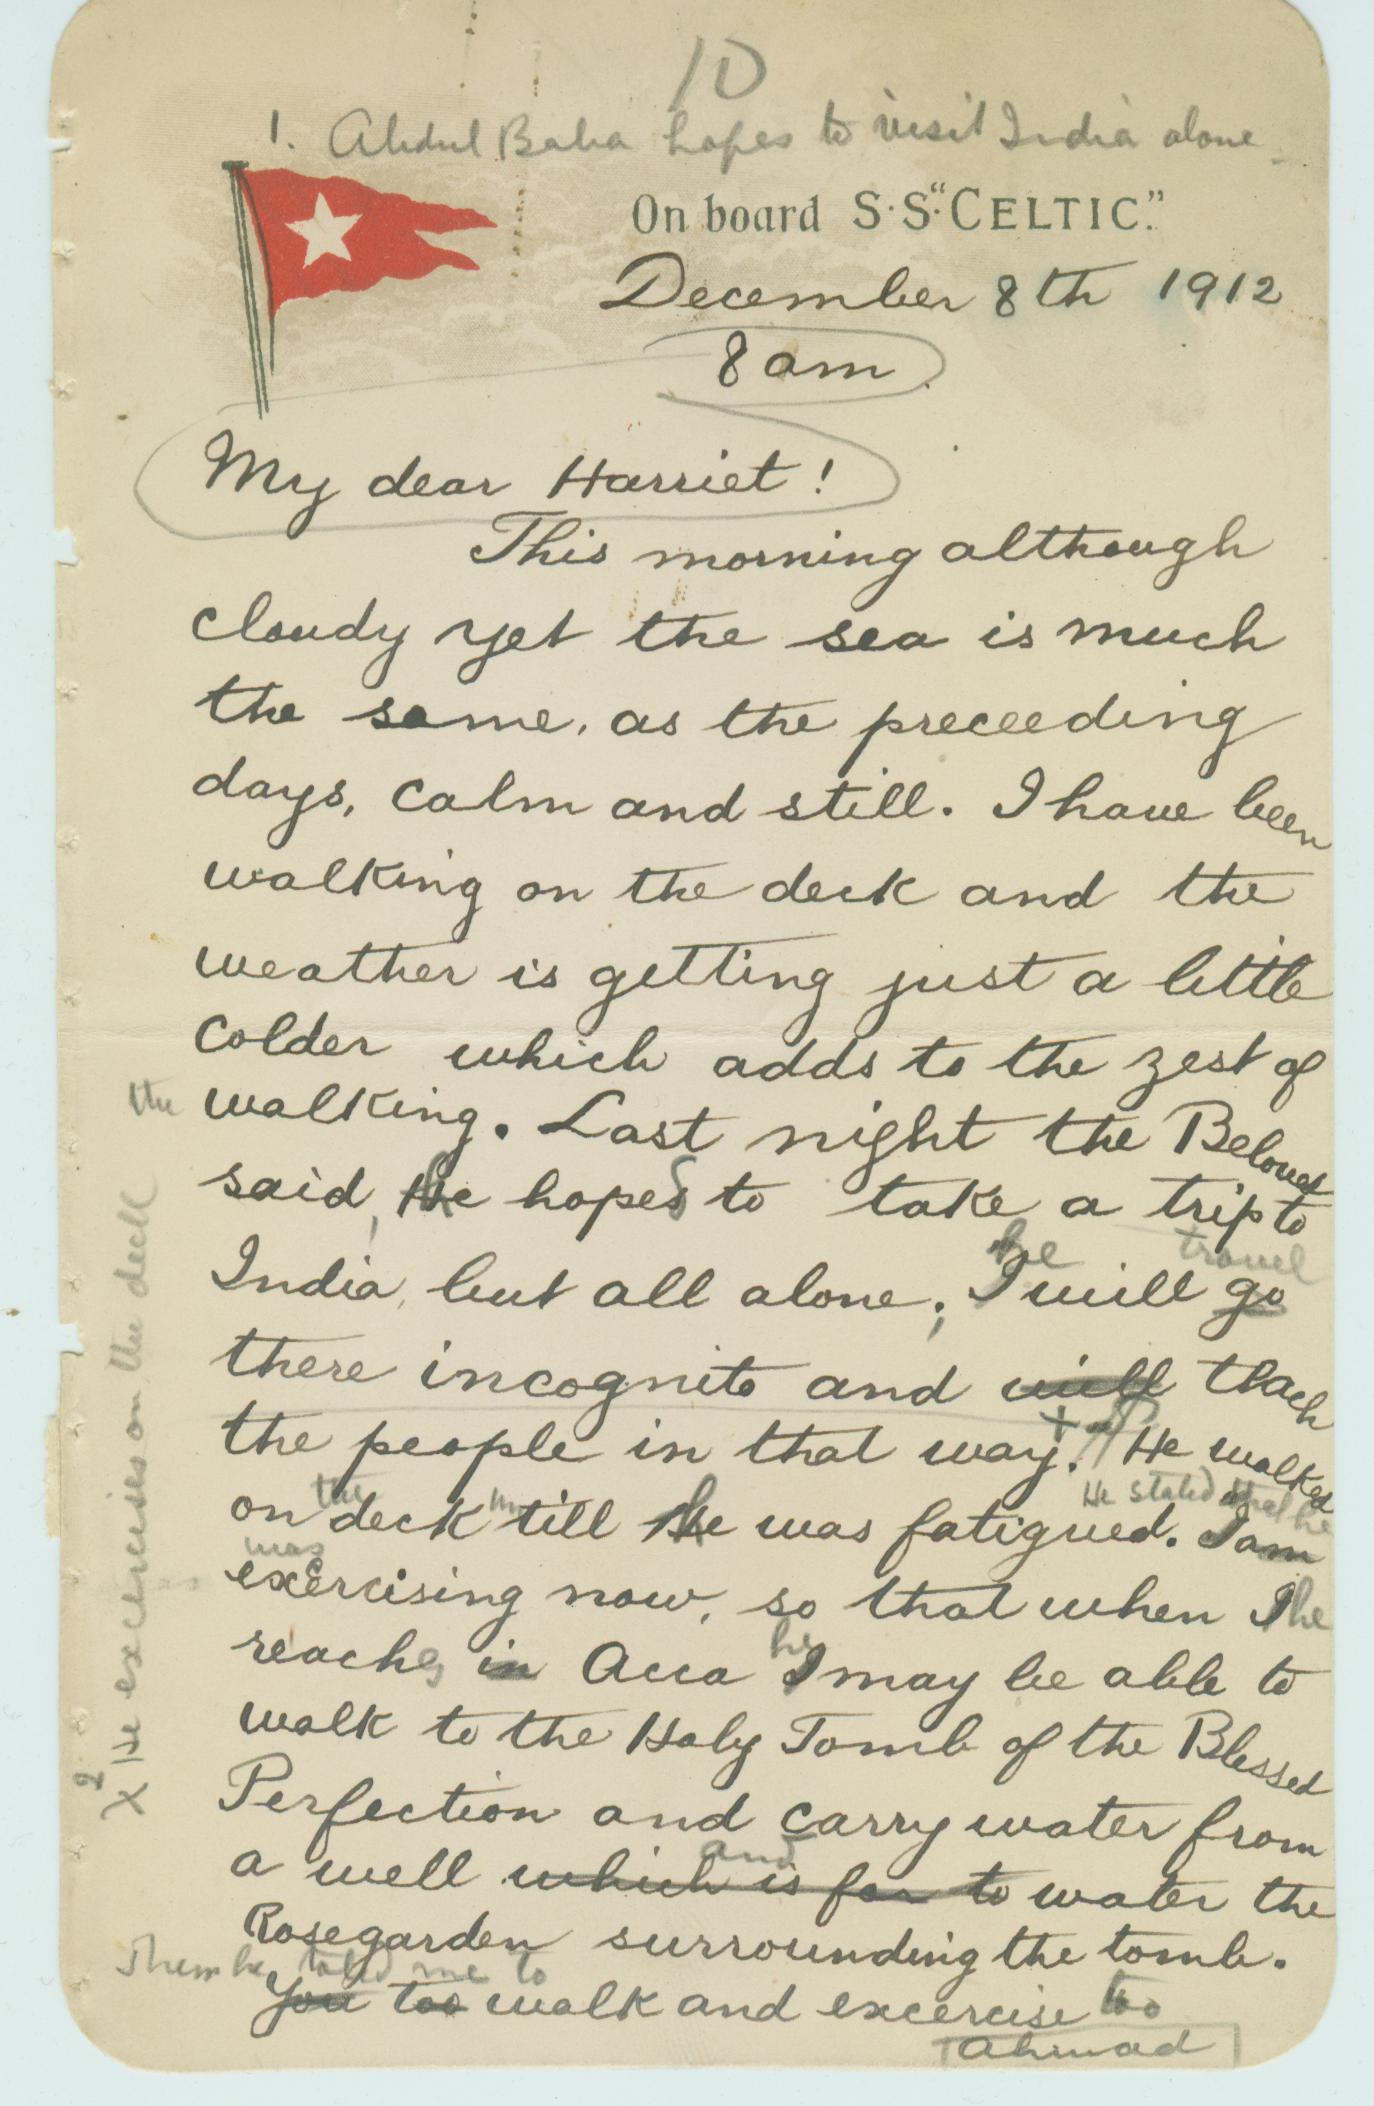 10
1. Abdul Baha hopes to visit India alone.
On board S.S. "CELTIC."
December 8th 1912
8 am.
My dear Harriet!
This morning although
cloudy yet the sea is much
the same, as the preceeding
days, calm and still. I have been
walking on the deck and the
weather is getting just a little
colder which adds to the zest of
the walking. Last night the Beloved
said, he hopes to take a trip to
he travel
India, but all alone; I will go
there incognito and will teach
the people in that way. He walked
the He stated that he
on deck till he was fatigued. I am
was
exercising now, so that when I he
he
reaches in Acca I may be able to
walk to the Holy Tomb of the Blessed
Perfection and carry water from
and
a well which is far to water the
Rosegarden surrounding the tomb.
Then he told me to
You too walk and excercise too
Ahmad
2
X He excercises on the deck